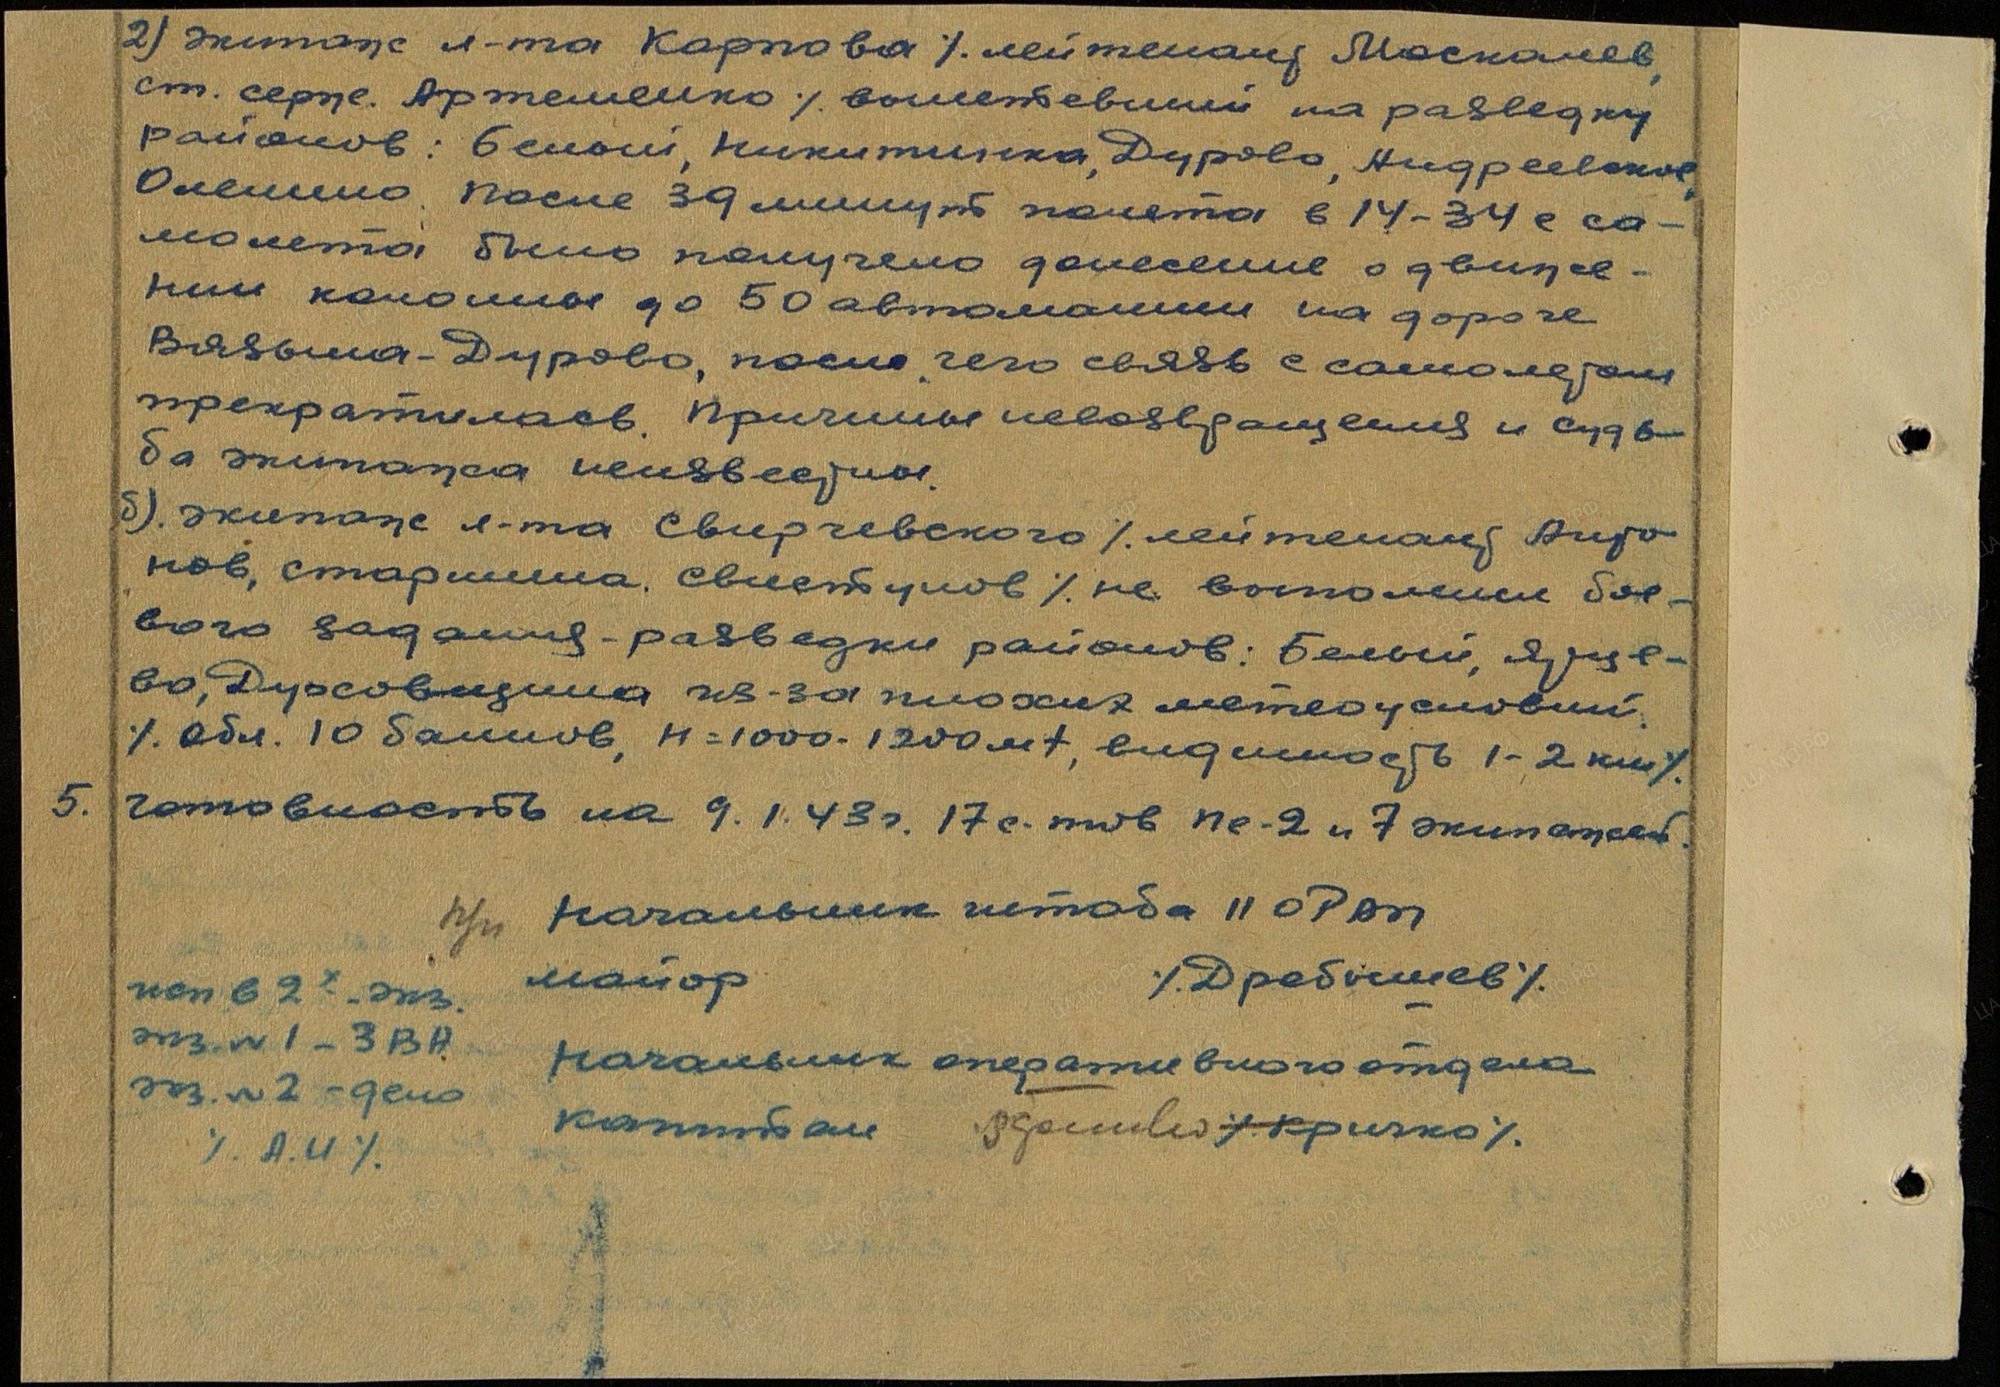 2) экипаж л-та Карпова /. лейтенант Москалев,
ст. серж. Артеменко /. вылетевший на разведку
районов: Белый, Никитинка, Дурово, Андреевское,
Оленино. После 39 минут полета в 14-34 с са-
молета было получено донесение о движе-
нии колонны до 50 автомашин на дороге
Вязьма-Дурово, после чего связь с самолетом
прекратилась. Причины невозвращения и судь-
ба экипажа неизвестны.
б). экипаж л-та Свирчевского /. лейтенант Анто-
нов, старшина Свистунов /. не выполнил бое-
вого задания - разведки районов: Белый, Ярце-
во, Духовщина из-за плохих метеоусловий.
/. Обл. 10 баллов, Н=1000-1200 мт, видимость 1-2 км /.
5. Готовность на 9.1.43г. 17 с-тов Пе-2 и 7 экипажей.
Начальник штаба 11 ОРАП
майор /. Дробышев /.
Начальник оперативного отдела
капитан /. Кричко /.
исп в 2х - экз.
экз. № 1 - 3 ВА
экз. № 2 - дело
/. А.И /.